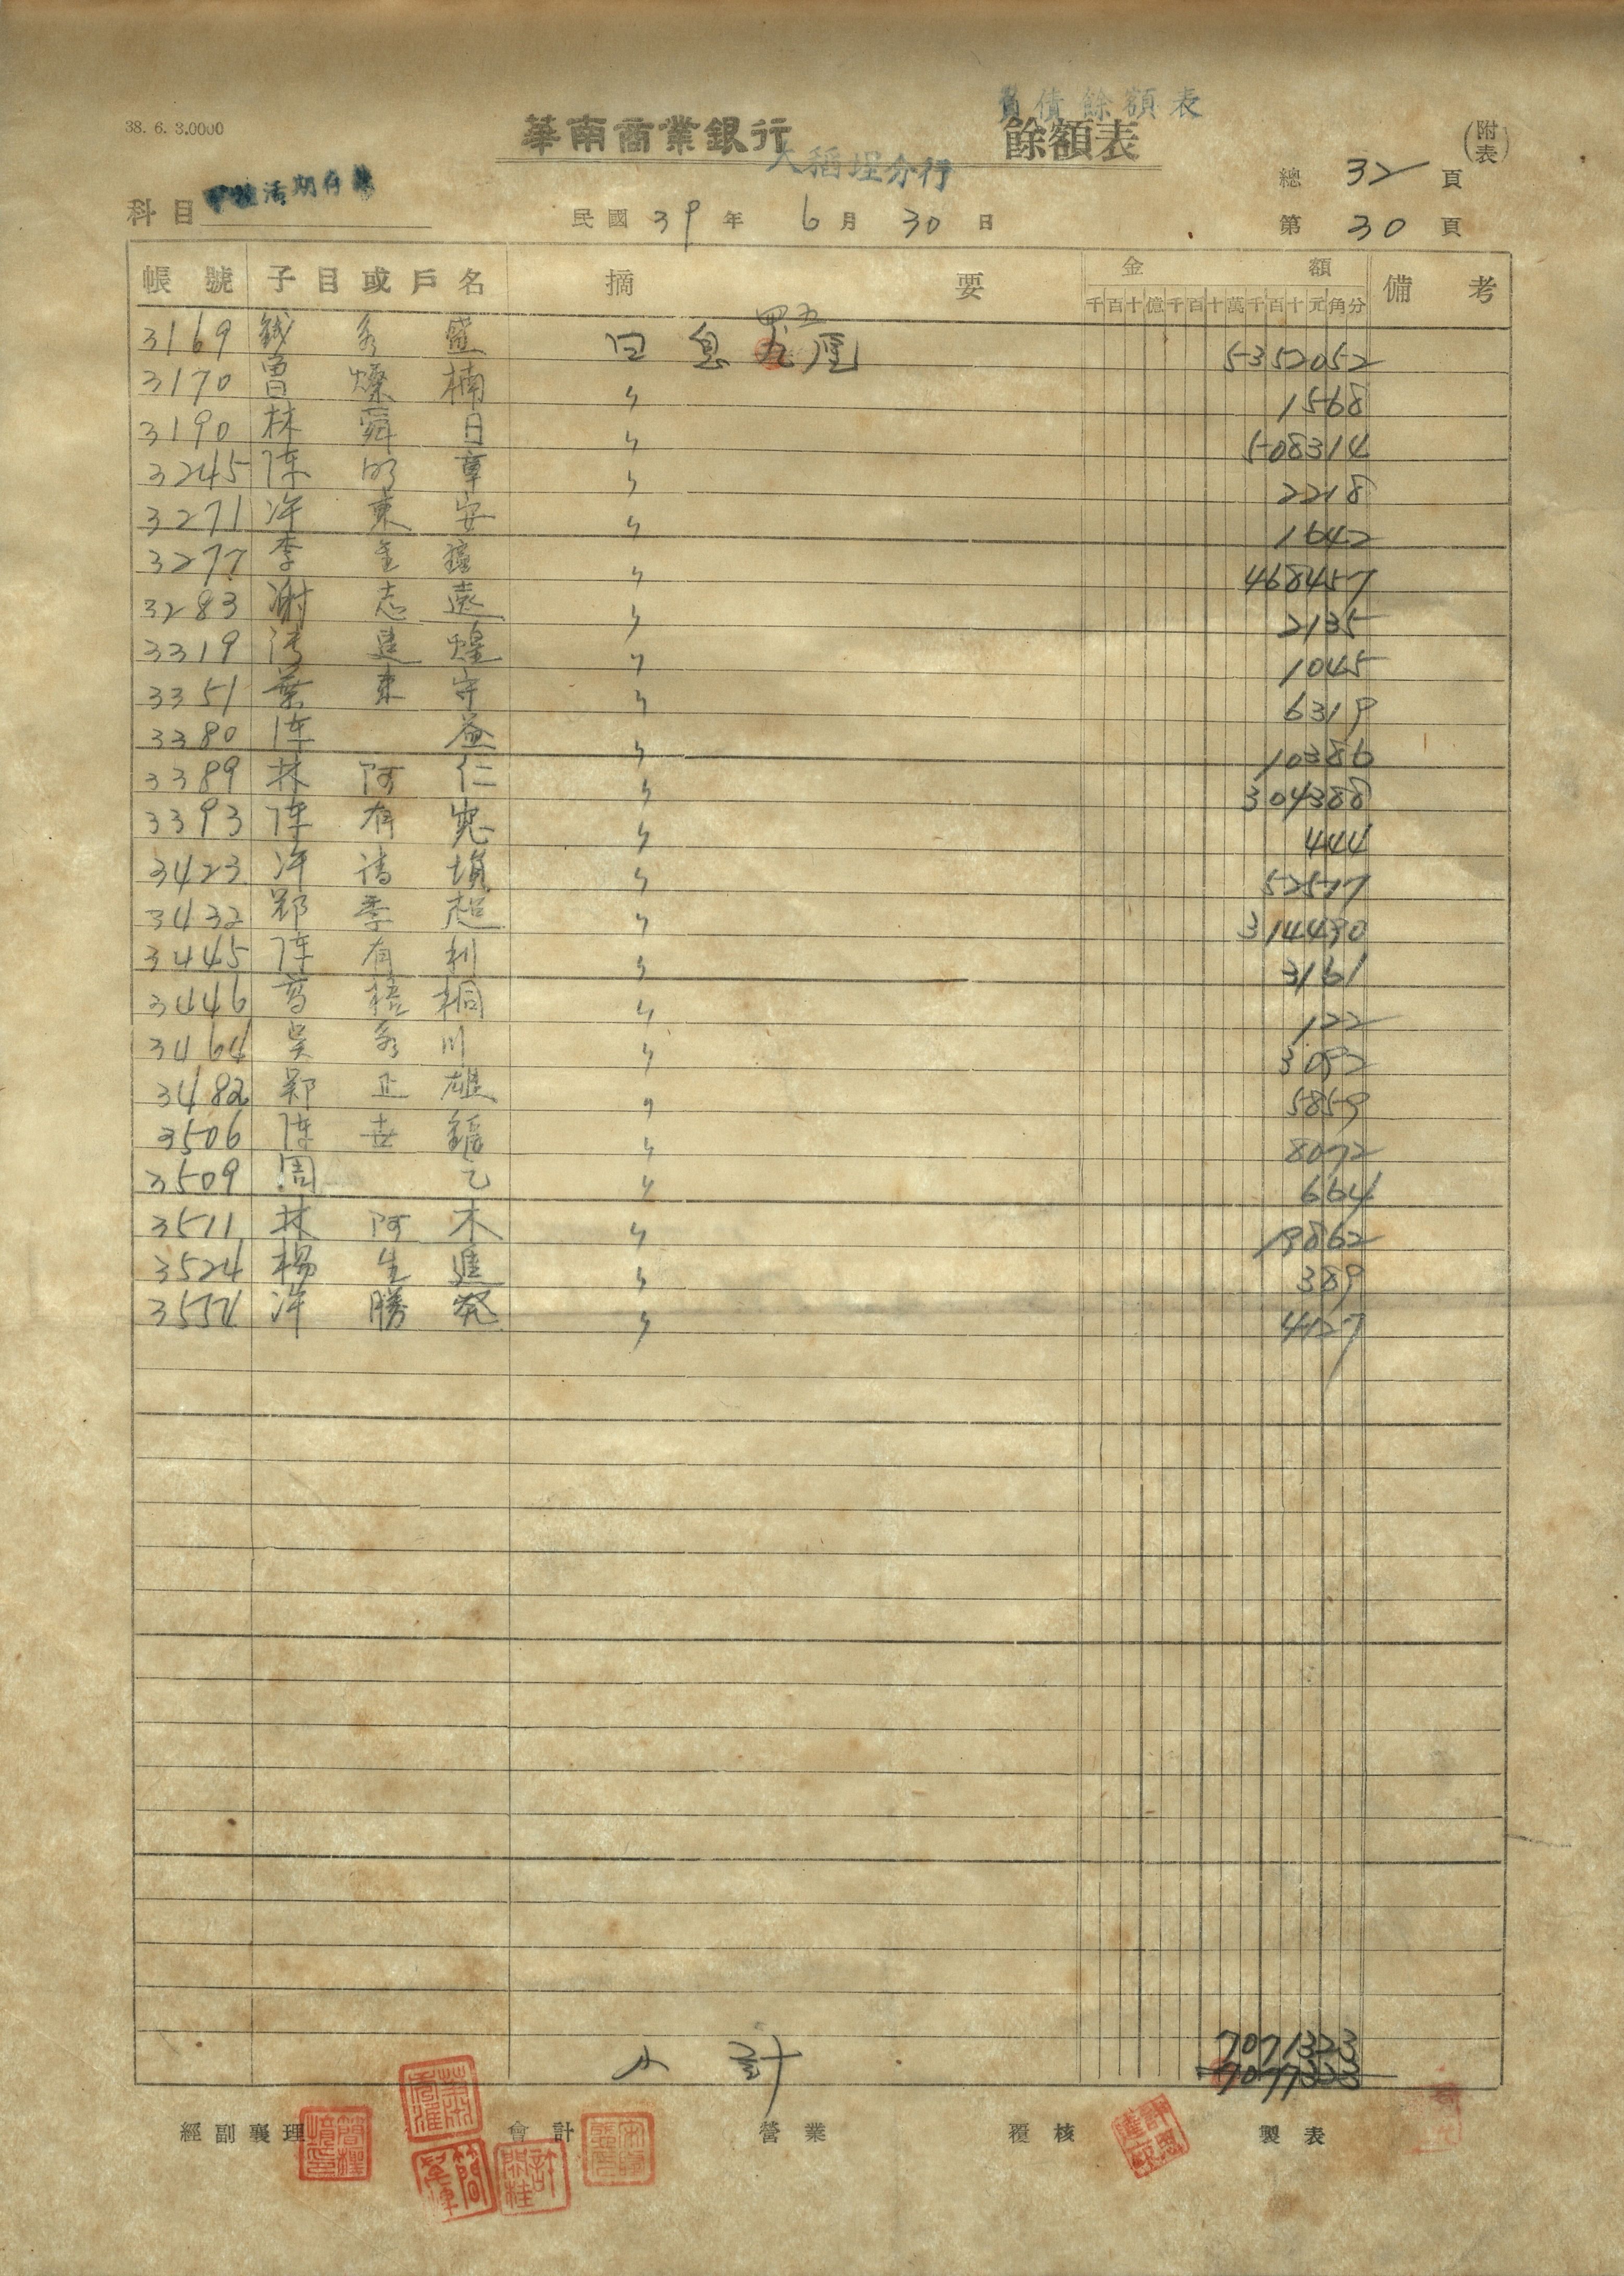 負債餘額表
38. 6. 3.0000
華南商業銀行 餘額表 (附表)
大稻埕分行
總 32 頁
科目 活期存款
民國 39 年 6 月 30 日
第 30 頁
帳號 子目或戶名 摘要 金額 備考
千百十億千百十萬千百十元角分
四五
3169 錢 秀 盛 日息 厘 5352052
3170 曹 燦 楠 〃 1568
3190 林 舜 日 〃 508314
3245 陳 明 章 〃 2218
3271 許 東 安 〃 1642
3277 李 金 〃 468457
3283 謝 志 遠 〃 2135
3319 建 煌 〃 1045
3351 葉 東 守 〃 6319
3380 陳 益 〃 10386
3389 林 阿 仁 〃 304388
3393 陳 有 〃 444
3423 許 清 〃 52577
3432 鄭 季 超 〃 314490
3445 陳 有 利 〃 3161
3446 梧 桐 〃 122
3464 吳 秀 川 〃 3052
3482 鄭 正 雄 〃 5859
3506 陳 〃 8072
3509 周 乙 〃 664
3511 林 阿 木 〃 19862
3524 楊 生 進 〃 389
許 勝 發 〃 4127
小計 7071323
7077323
經副襄理 會計 營業 覆核 製表